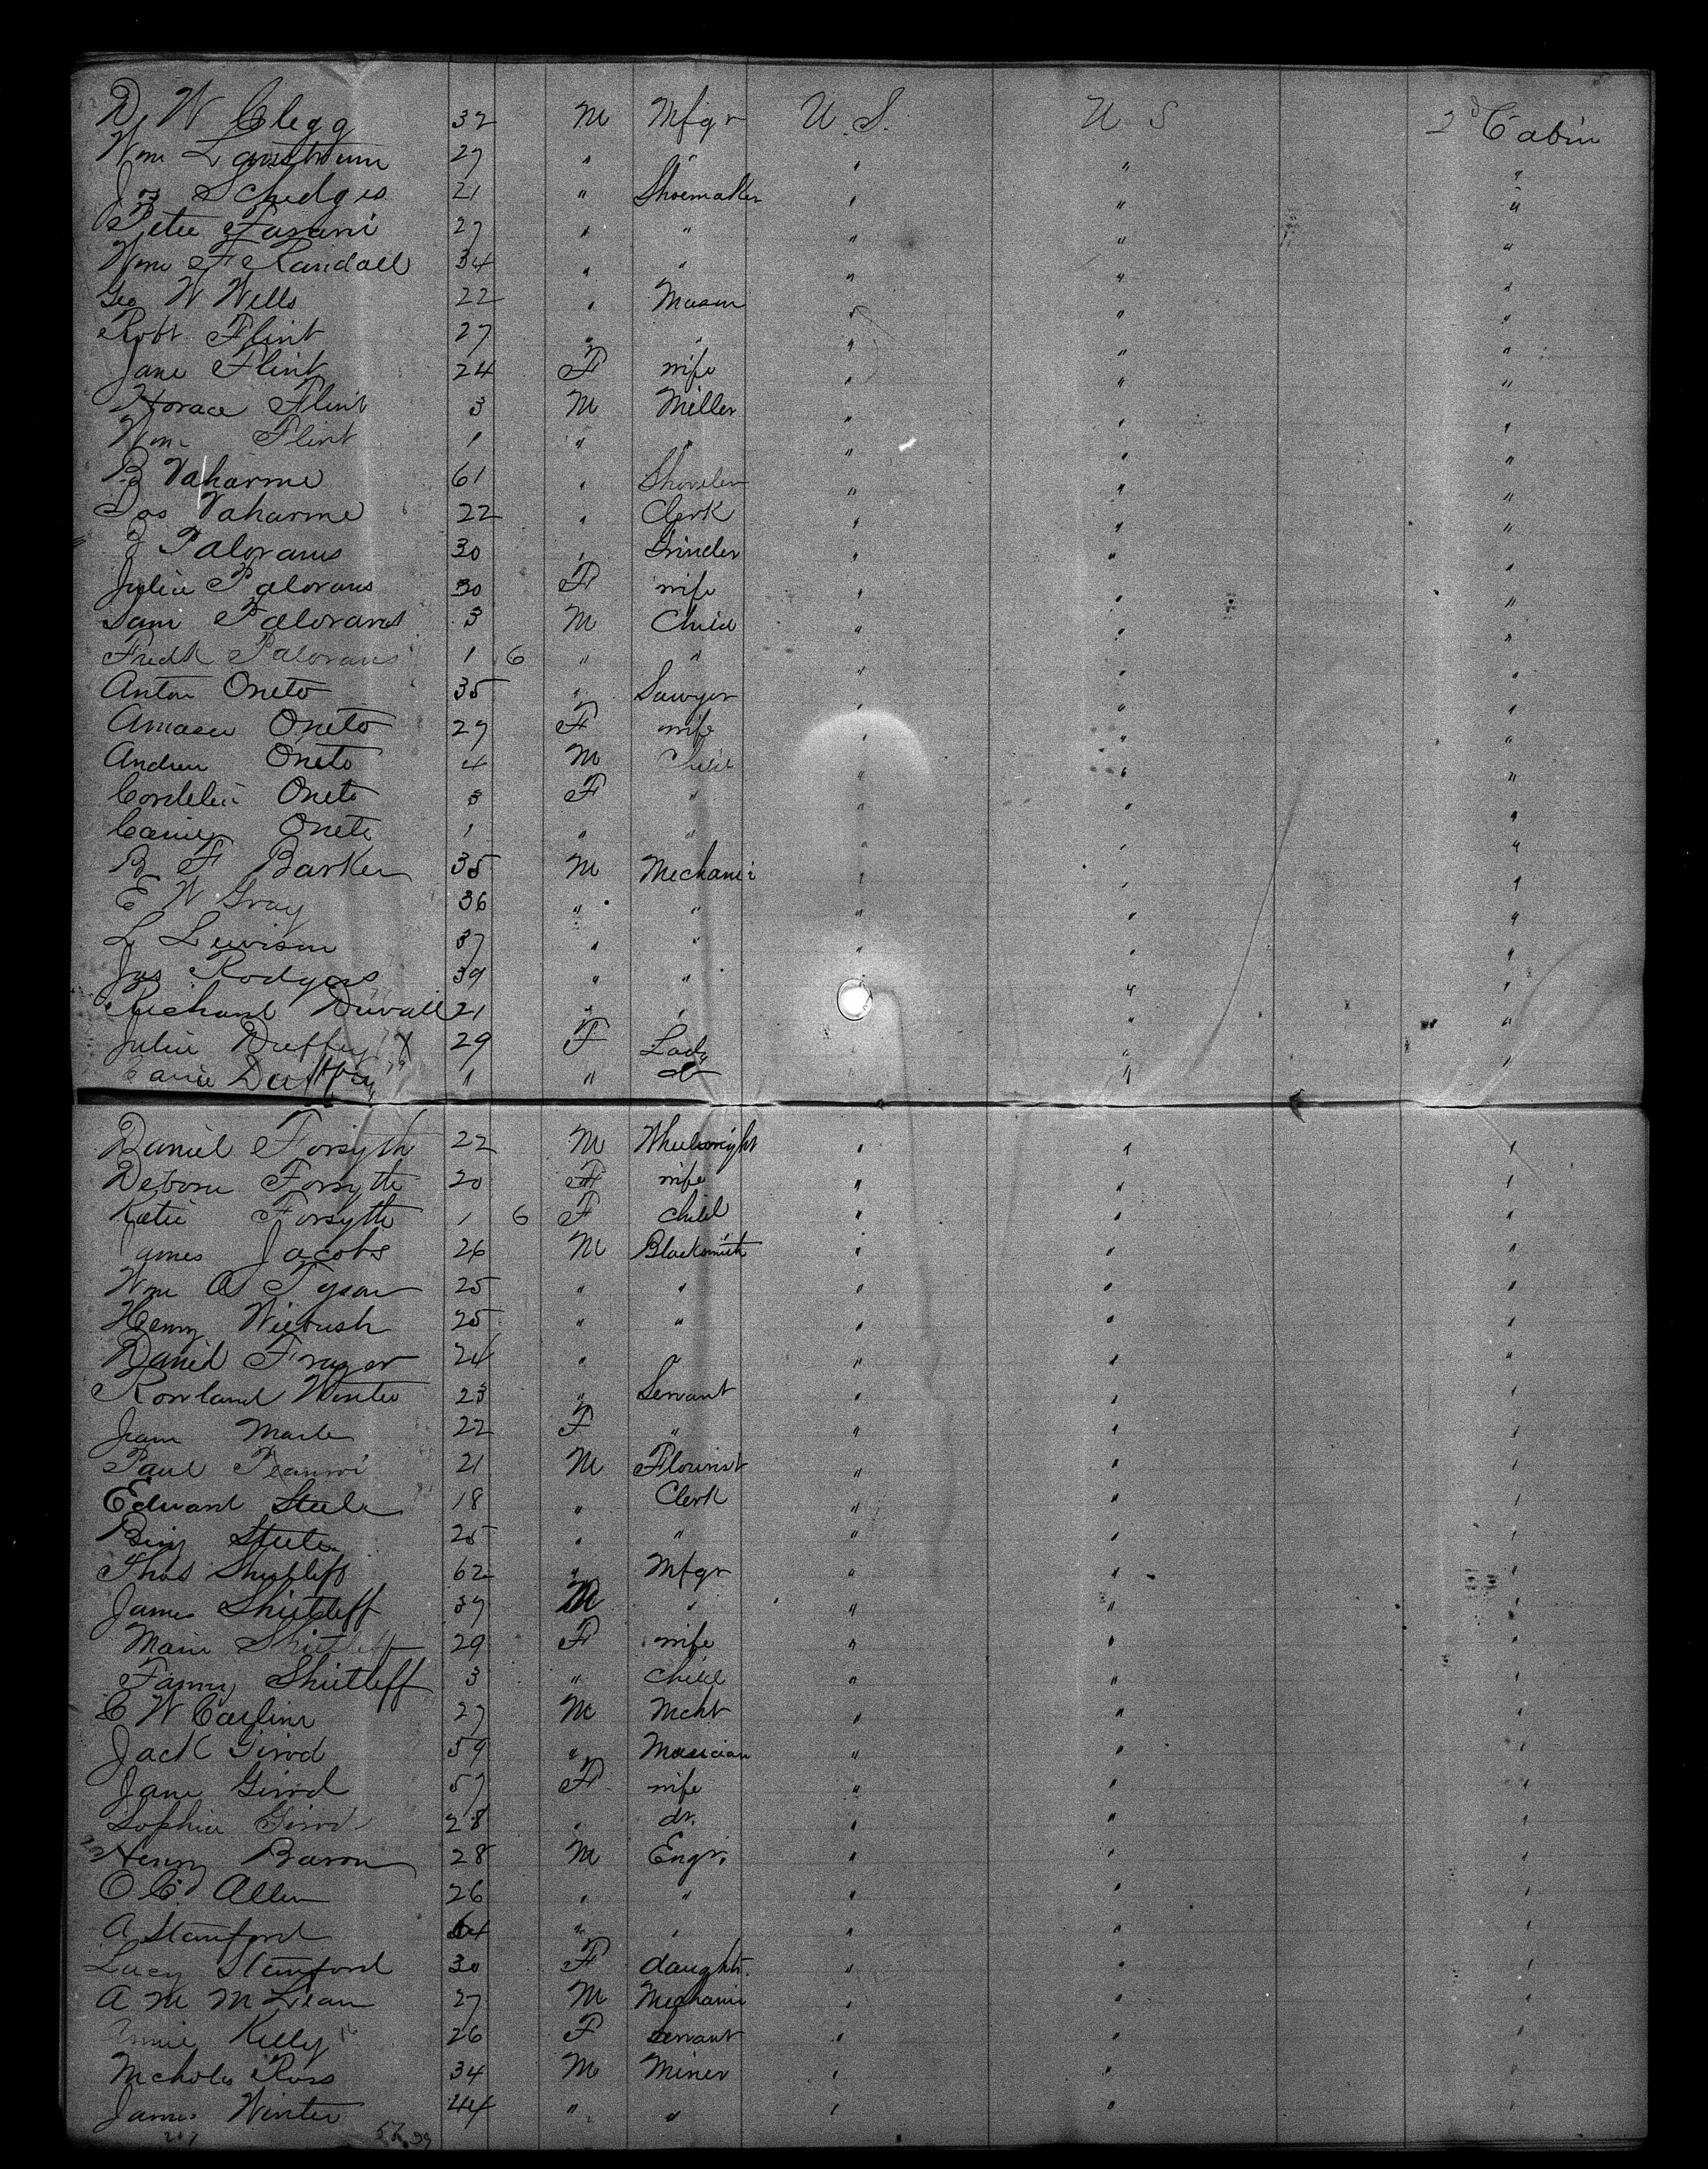 D. W Clegg 32 M Mfgr U. S. U S 2d Cabin
Wm 27 " " " " "
Jos Schedges 21 " Shoemaker " " "
Pete Fasani 27 " " " " "
Wm F Randall 34 " " " " "
Geo W Wells 22 " Mason " " "
Robt Flint 27 " " " " "
Jane Flint 24 F wife " " "
Horace Flint 3 M Miller " " "
Wm Flint 1 " " " " "
B Vaharme 61 " " " "
Jos Vaharme 22 " Clerk " " "
J Palorans 30 " Grinder " " "
Julia Palorans 30 F wife " " "
Sam Palorans 3 M Child " " "
Fredk Palorans 1 6 " " " " "
Anton Oneto 35 " Sawyer " " "
Amasa Oneto 27 F wife " " "
Andrew Oneto 4 M Child " " "
Cordelia Oneto 3 F " " " "
Oneto 1 " " " " "
B F Barker 35 M Mechanic " " "
E W Gray 36 " " " " "
L Lewison 37 " " " " "
Jas Rodgers 39 " " " " "
Richard Duvall 21 " " " " "
Julia Duffey X 29 F Lady " " "
Carrie Duffey 1 " do " "
Daniel Forsyth 22 M Wheelwright " " "
Debora Forsyth 20 F wife " " "
Katie Forsyth 1 6 F Child " " "
James Jacobs 26 M Blacksmith " " "
Wm A Tyson 25 " " " " "
Henry Wiebush 25 " " " " "
Daniel Frazer 24 " " " " "
Rowland Winter 23 " Servant " " "
Jean Marle 22 F " " " "
Paul 21 M Flourist " " "
Edward Steele 18 " Clerk " " "
Benj Steele 25 " " " " "
Thos Shirtleff 62 " Mfgr " " "
James Shirtleff 37 M " " " "
Marie Shirtleff 29 F wife " " "
Fanny Shirtleff 3 " Child " " "
C W Carline 27 M Mcht " " "
Jack Girod 59 " Musician " " "
Jane Girod 57 F wife " " "
Sophia Girod 28 " dr. " " "
Henry Baron 28 M Engr. " " "
O. C. Allen 26 " " " " "
A Stamford 64 " " " " "
Lucy Stamford 30 F daughtr. " " "
A M McLean 27 M Mechanic " " "
Annie Kelly 26 F Servant " " "
Nicholas Ross 34 M Miner " " "
James Winter 44 " " " " "